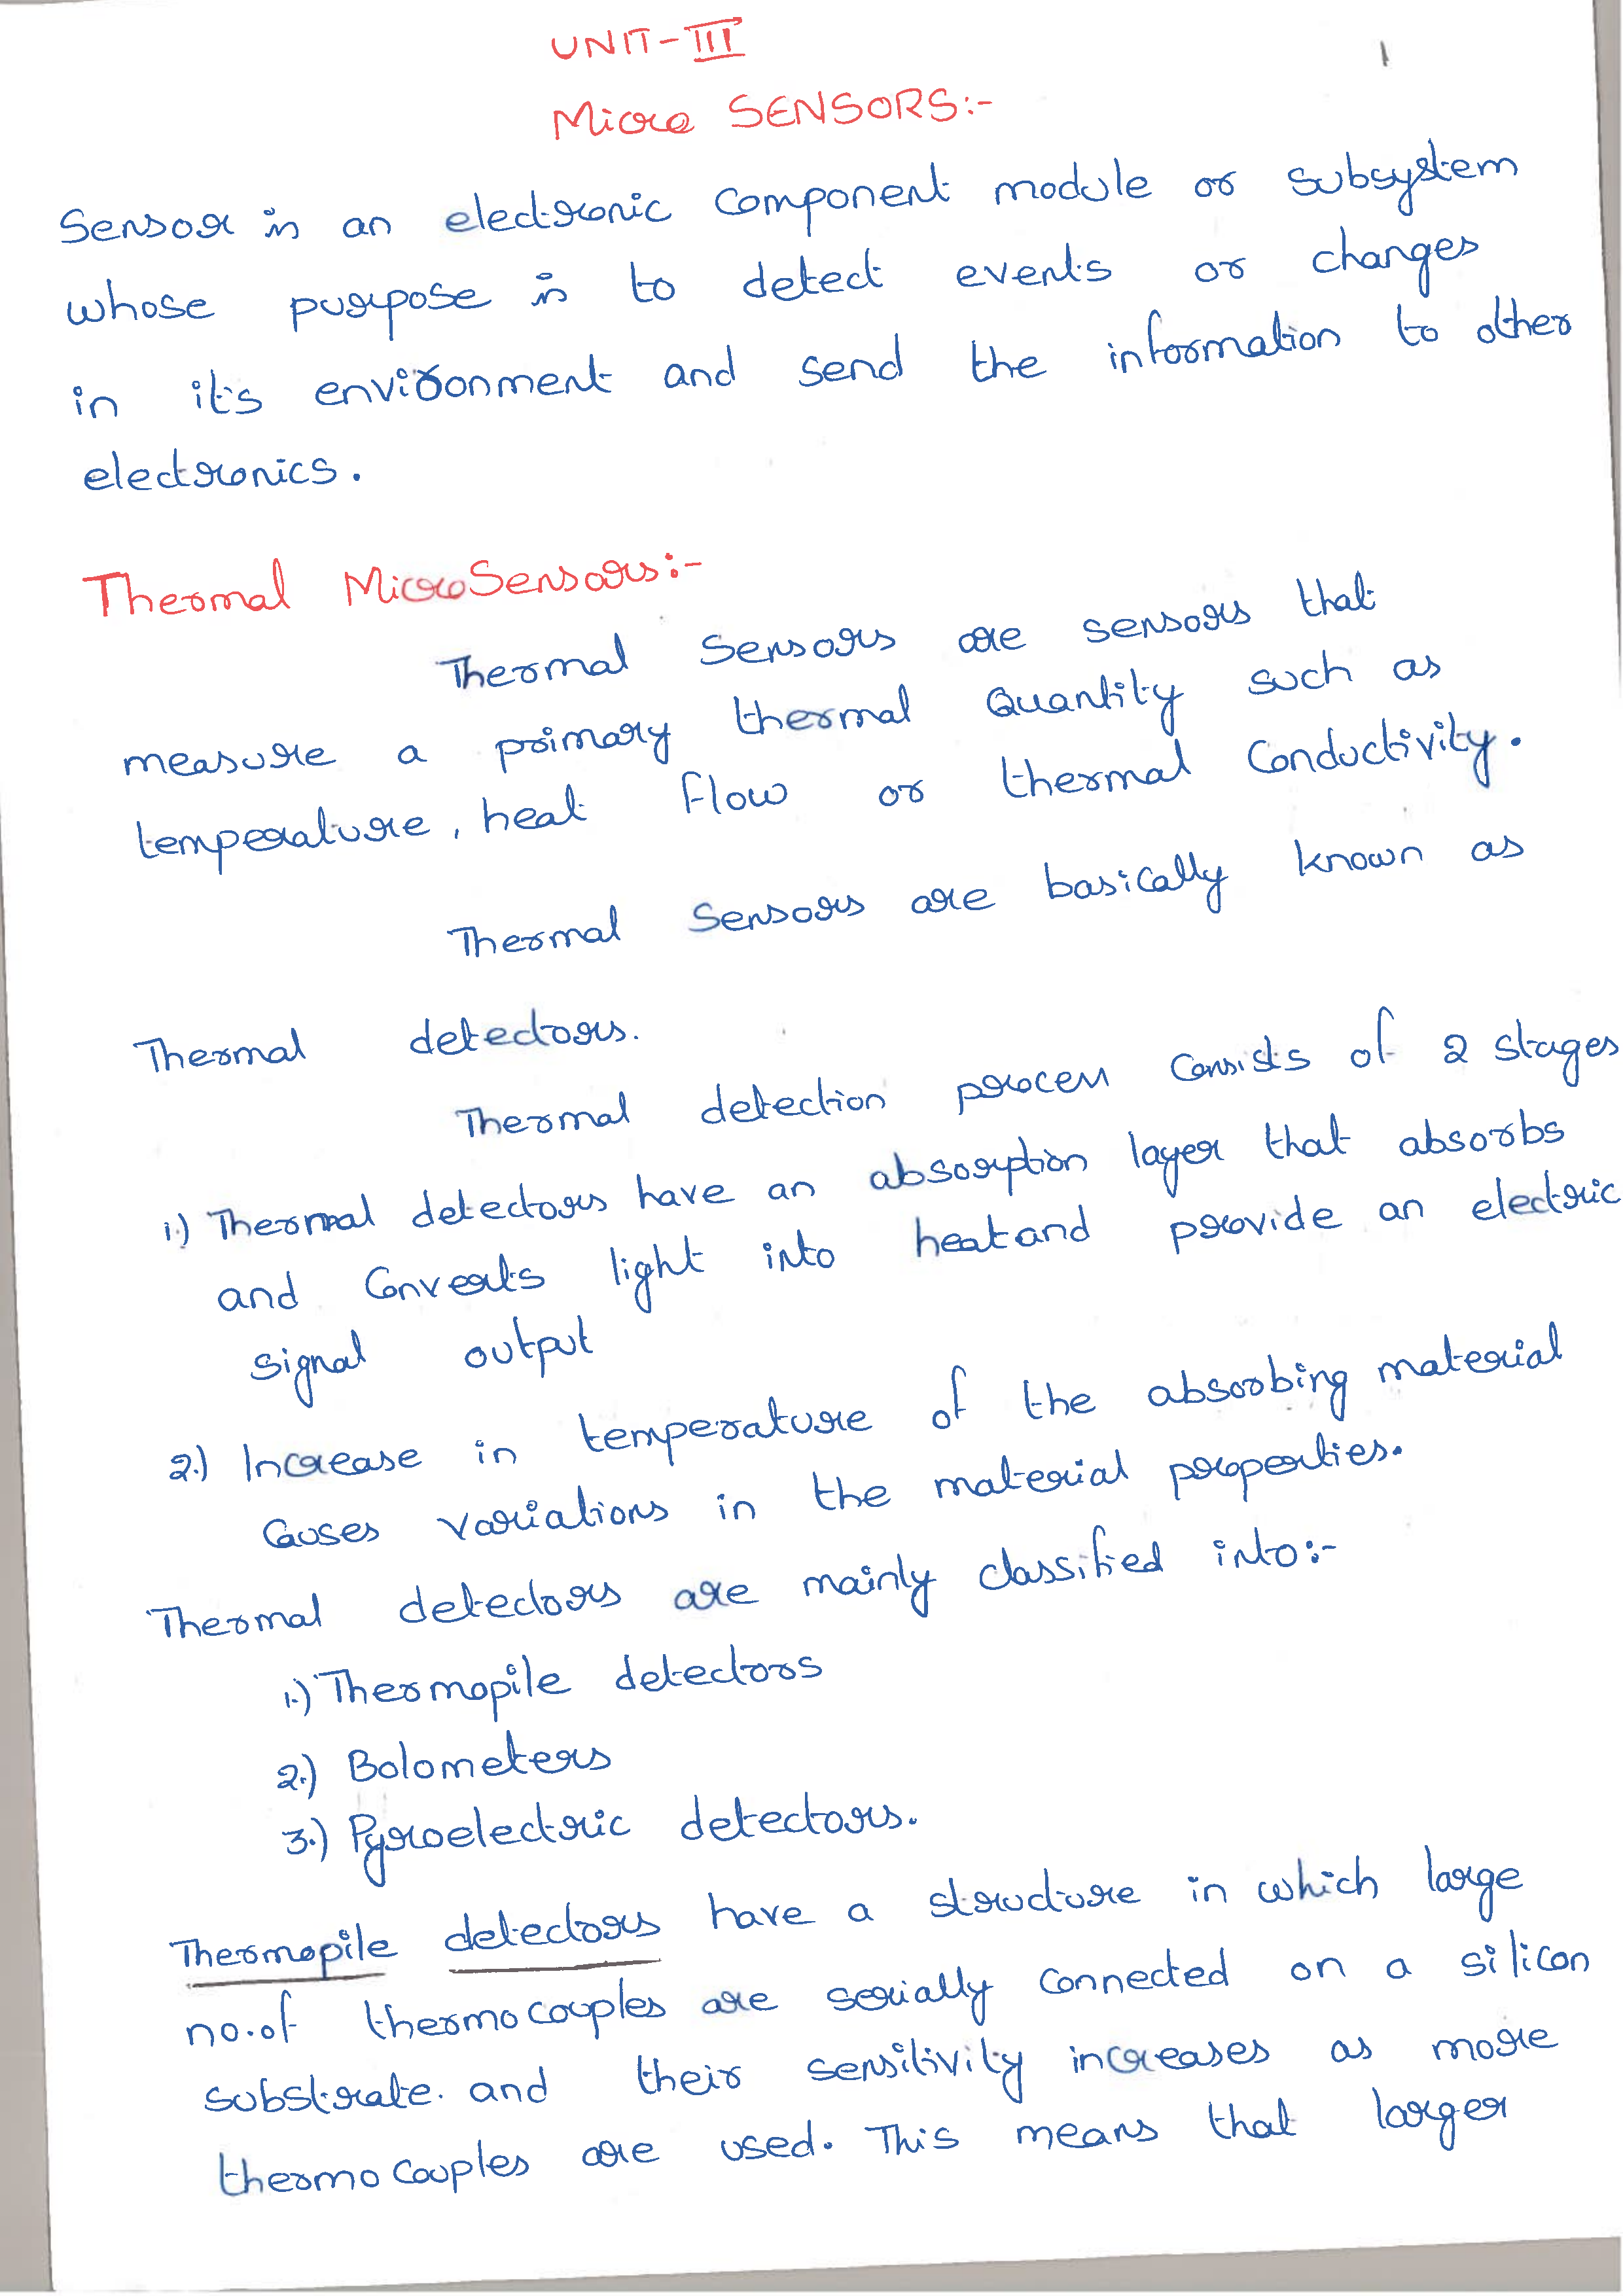 UNIT-III
1
Micro SENSORS:-
Sensor is an electronic Component module or subsystem
whose purpose is to detect events or changes
in it's environment and send the information to other
electronics.
Thermal MicroSensors:-
Thermal Sensors are sensors that
measure a primary thermal Quantity such as
temperature, heat flow or thermal Conductivity.
Thermal Sensors are basically known as
Thermal detectors.
Thermal detection process Consists of 2 stages
1.) Thermal detectors have an absorption layer that absorbs
and Converts light into heat and provide an electric
signal output
2.) Increase in temperature of the absorbing material
Causes variations in the material properties.
Thermal detectors are mainly classified into:-
1.) Thermopile detectors
2.) Bolometers
3.) Pyroelectric detectors.
Thermopile detectors have a structure in which large
no.of thermo couples are serially Connected on a silicon
substrate. and their sensitivity increases as more
thermo Couples are used. This means that larger